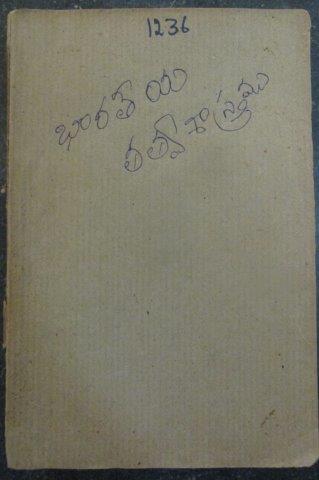 1236
భారతీయ
తత్వశాస్త్రము